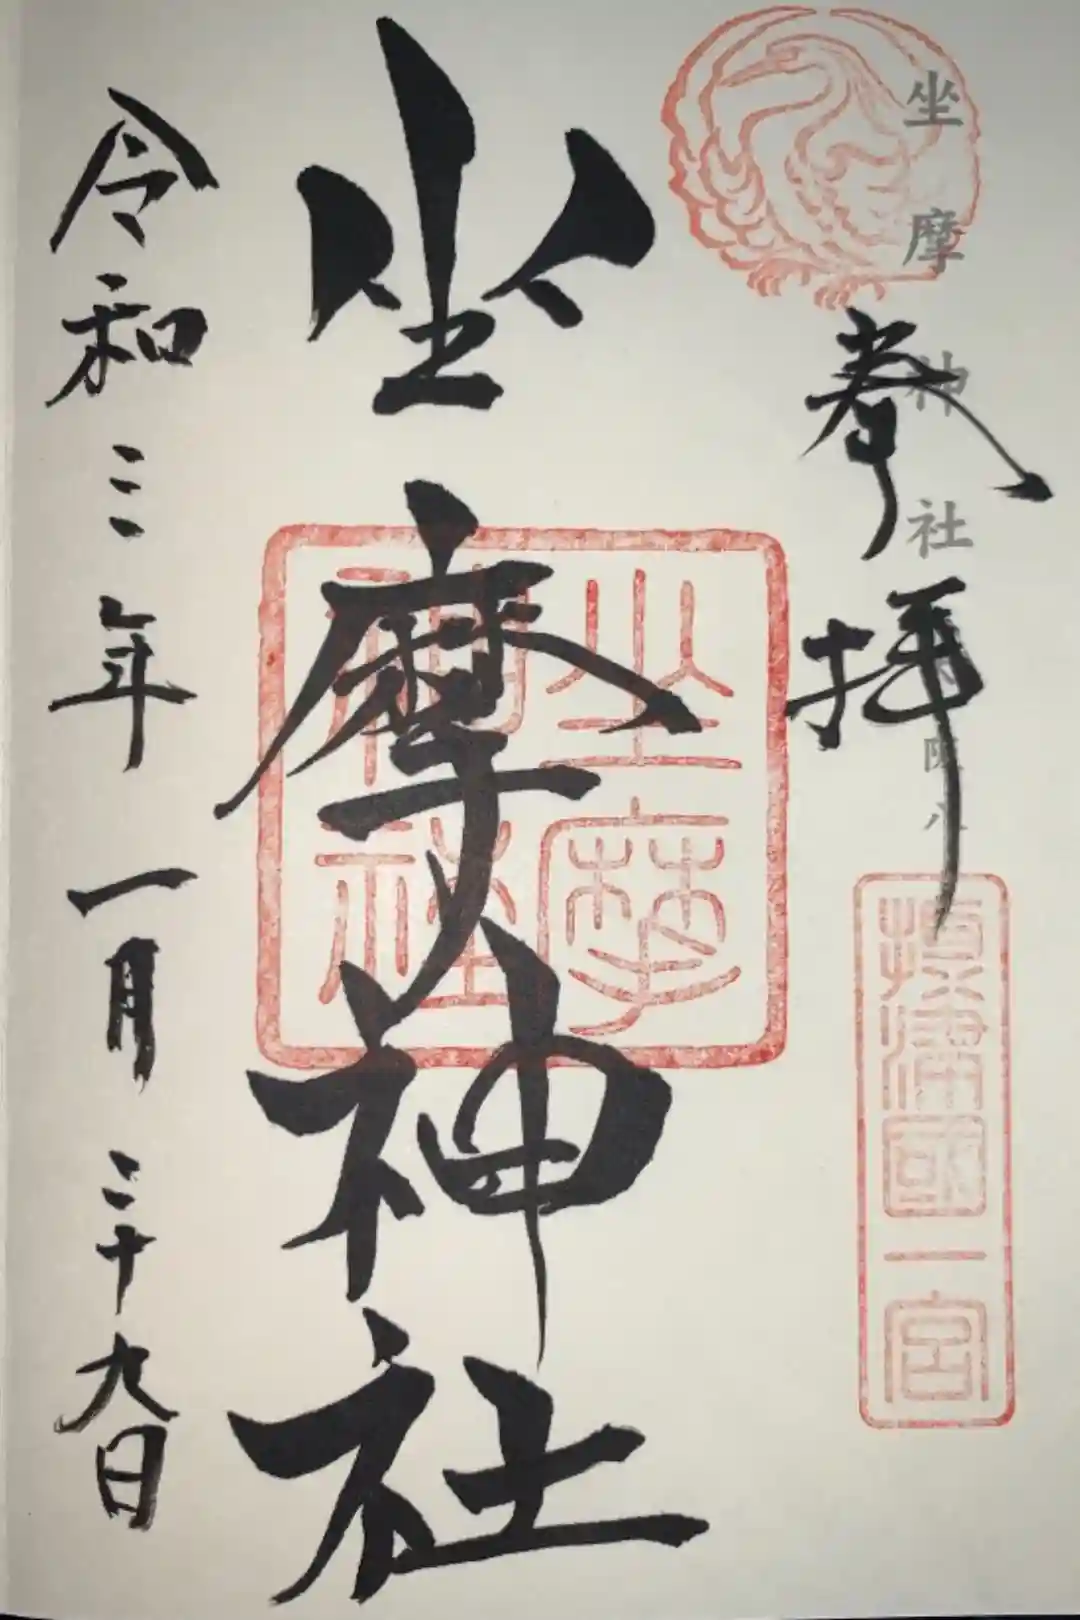 坐摩神社
奉拝
攝津國一宮
坐摩神社
坐摩神社
令和三年一月二十九日